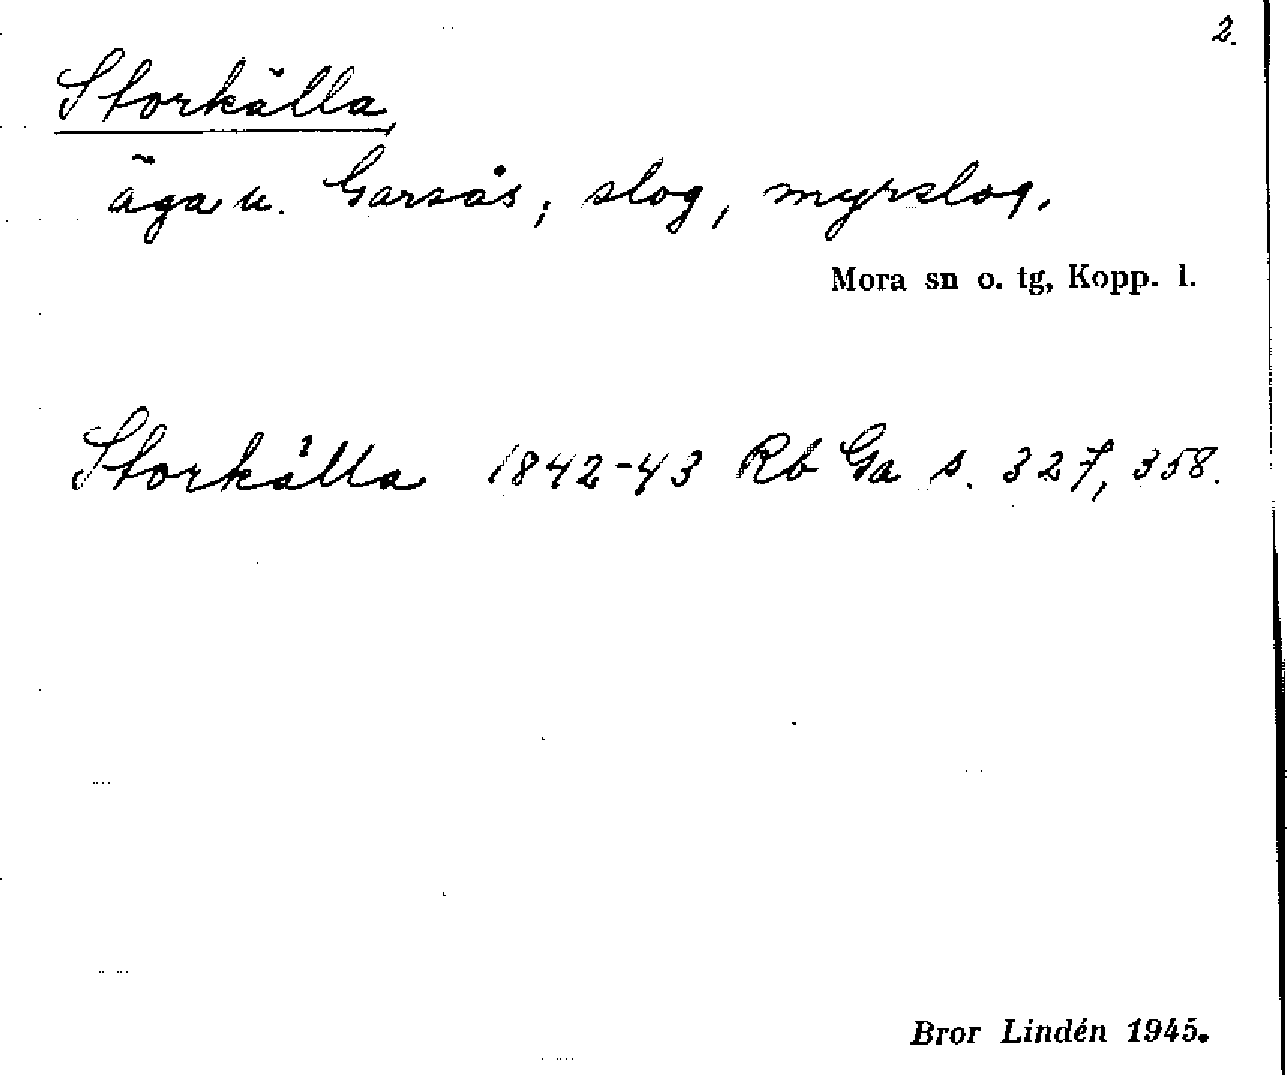 2.
Storkälla
äga u. Garsås; slog, myrslog.
Mora sn o. tg, Kopp. l.
Storkälla 1842-43 Rb Ga s. 327, 358.
Bror Lindén 1945.